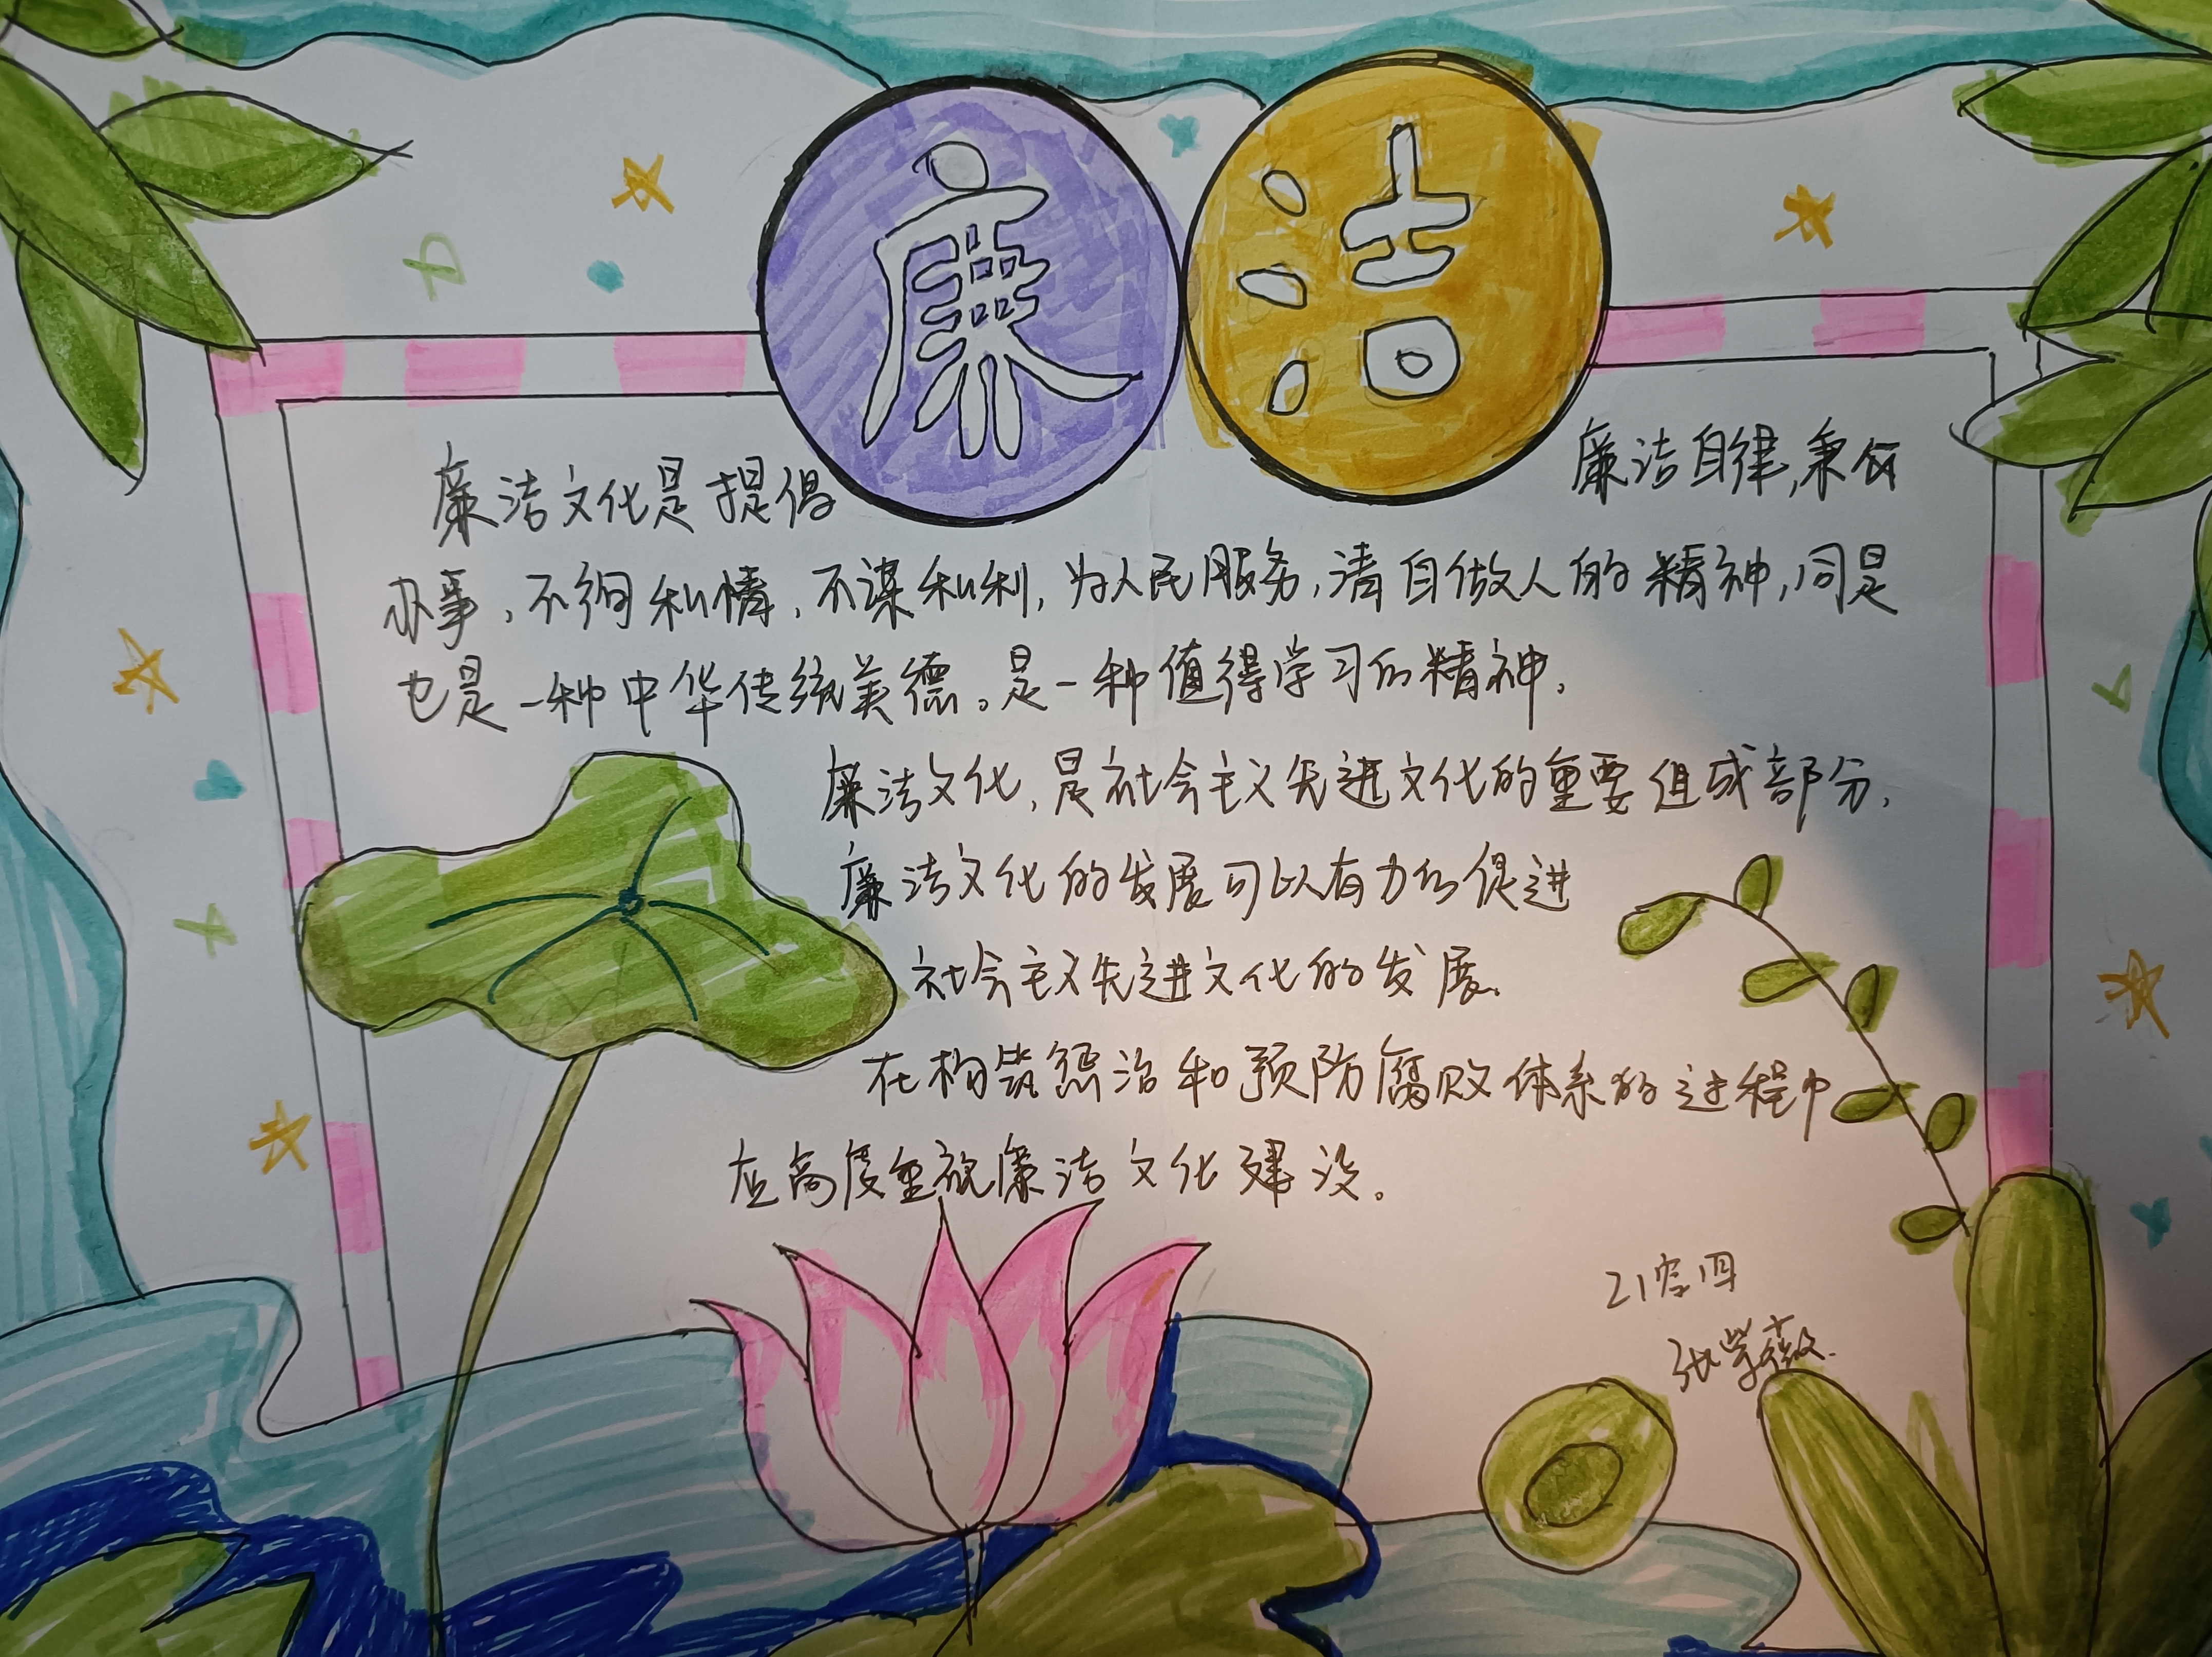 廉洁
廉洁文化是提倡 廉洁自律,秉公
办事,不徇私情,不谋私利,为人民服务,清白做人的精神,同是
也是一种中华传统美德。是一种值得学习的精神。
廉洁文化,是社会主义先进文化的重要组成部分,
廉洁文化的发展可以有力的促进
社会主义先进文化的发展。
在构筑惩治和预防腐败体系的过程中
应高度重视廉洁文化建设。
张紫薇.